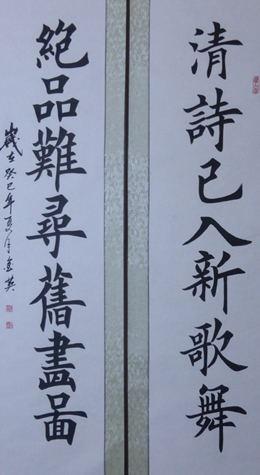 清詩已入新歌舞
絕品難尋舊畫啚
歲在癸巳年